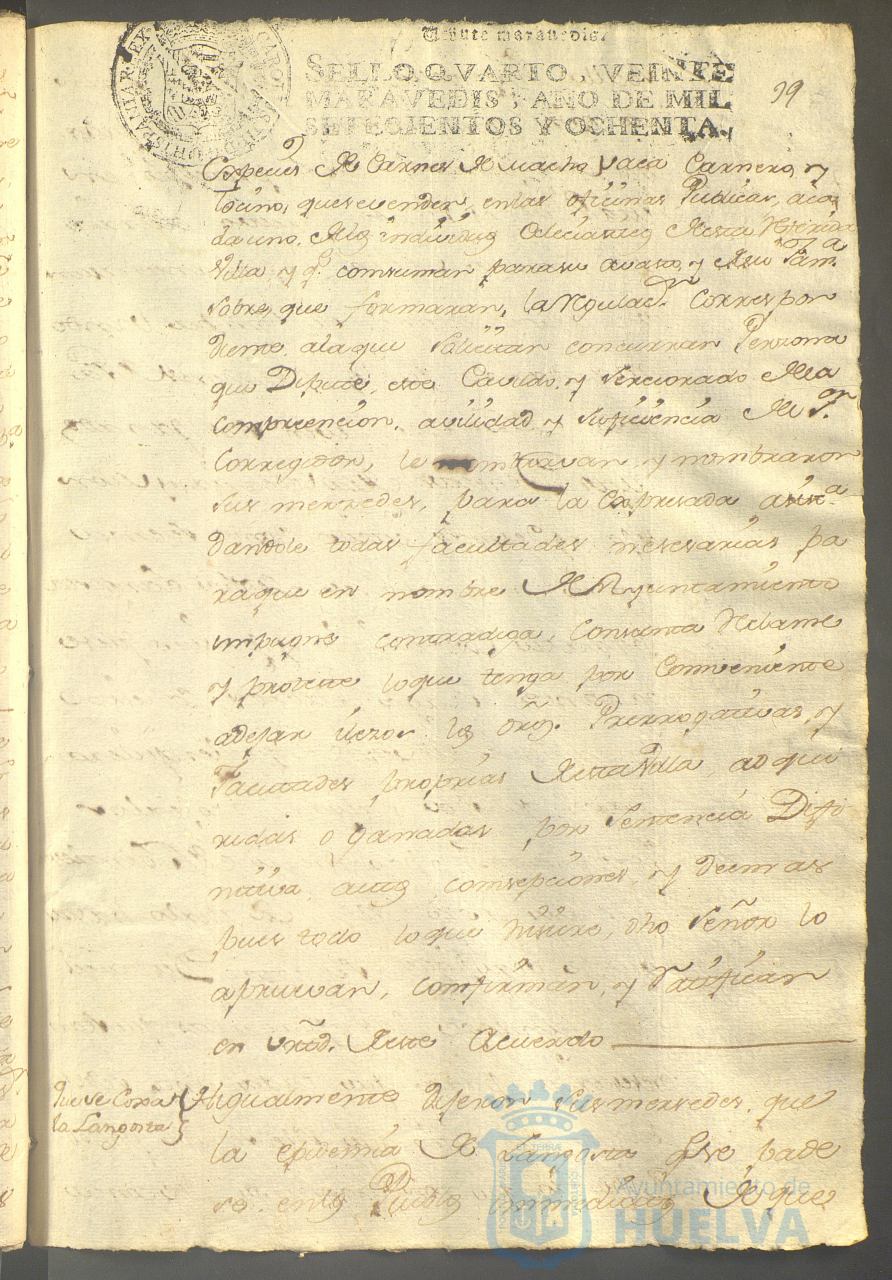 Veinte maravedis.
SELLO QVARTO, VEINTE
MARAVEDIS, AÑO DE MIL
SETECIENTOS Y OCHENTA.
39
CAROLUS III D G HISPANIAR REX
Expecies de Carnes de macho, vaca Carnero, y
tocino, que se venden, en las oficinas Publicas, aca
da uno, de los individuos Eclesiasticos de esta referida
Villa, y q.e consuman para su avasto, y de su fam.a
sobre que formaran, la regulac.on correspon
diente, ala que solicitan concurran Persona
que Dipute, este Cavildo, y serciorado de la
comprencion, avilidad, y suficiencia del S.or
Corregidor, le nombravan, y nombraron
sus mersedes, para la expresada asist.a
dandole todas facultades nesesarias pa
raque en nombre del Ayuntamiento
impugne contradiga, Consienta Reclame
y proteste loque tenga por Conveniente
adejar ilezos los dros. Prerrogativas, y
Facultades proprias de esta Villa, adqui
ridas o ganadas por Sentencia Difi
nitiva, autos consepciones, y demas
pues todo loque hisiere, dho Señor lo
apruevan, confirman, y ratifican
en virtd. de este Acuerdo
Que se Coxa
la Langosta
Higualmente dijeron sus mersedes, que
la epidemia de Langosta que pade
se enlos Pueblos inmediatos de que
Ayuntamiento de
HUELVA